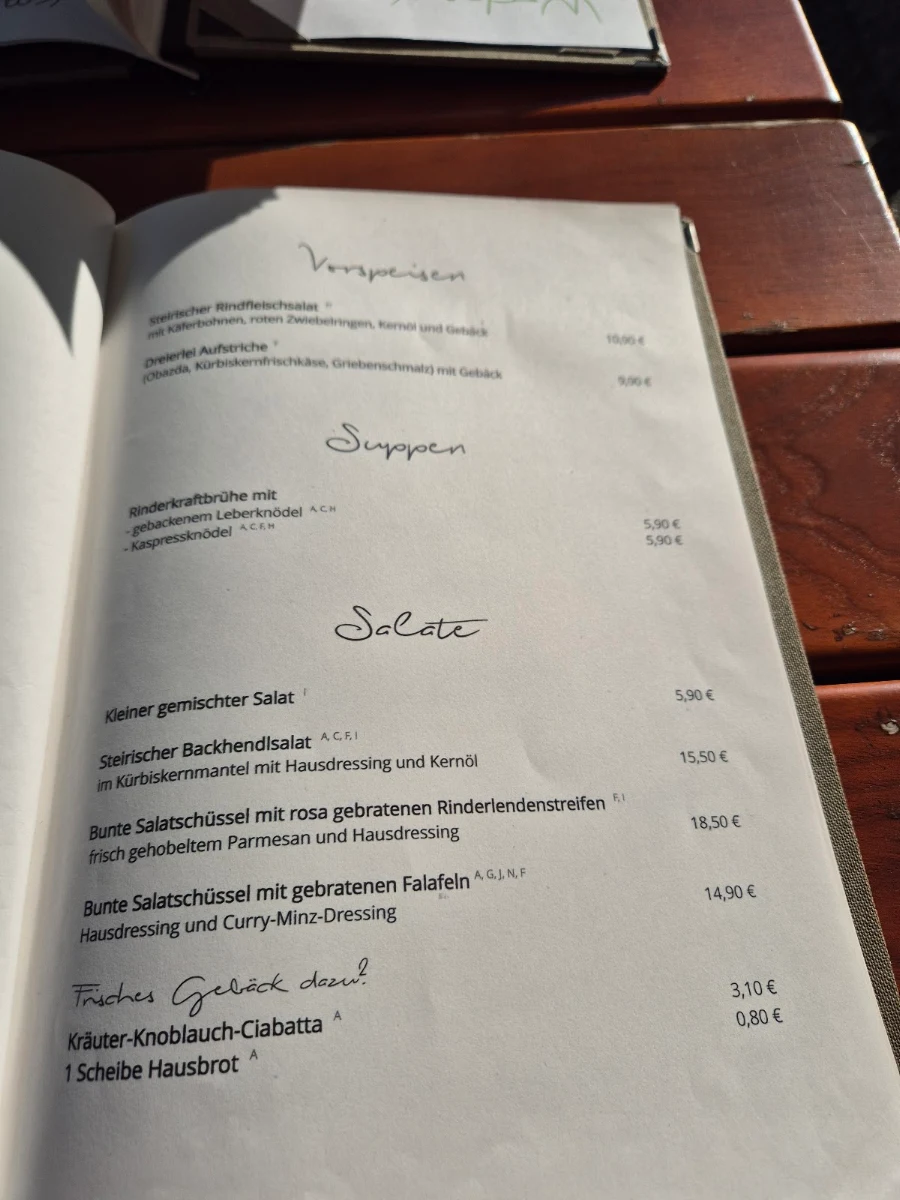 Vorspeisen
Steirischer Rindfleischsalat
mit Käferbohnen, roten Zwiebelringen, Kernöl und Gebäck
10,90 €
Dreierlei Aufstriche
(Obazda, Kürbiskernfrischkäse, Griebenschmalz) mit Gebäck
9,90 €
Suppen
Rinderkraftbrühe mit
- gebackenem Leberknödel A, C, H 5,90 €
- Kaspressknödel A, C, F, H 5,90 €
Salate
Kleiner gemischter Salat I 5,90 €
Steirischer Backhendlsalat A, C, F, I
im Kürbiskernmantel mit Hausdressing und Kernöl 15,50 €
Bunte Salatschüssel mit rosa gebratenen Rinderlendenstreifen F, I
frisch gehobeltem Parmesan und Hausdressing 18,50 €
Bunte Salatschüssel mit gebratenen Falafeln A, G, J, N, F
Hausdressing und Curry-Minz-Dressing 14,90 €
Frisches Gebäck dazu?
Kräuter-Knoblauch-Ciabatta A 3,10 €
1 Scheibe Hausbrot A 0,80 €